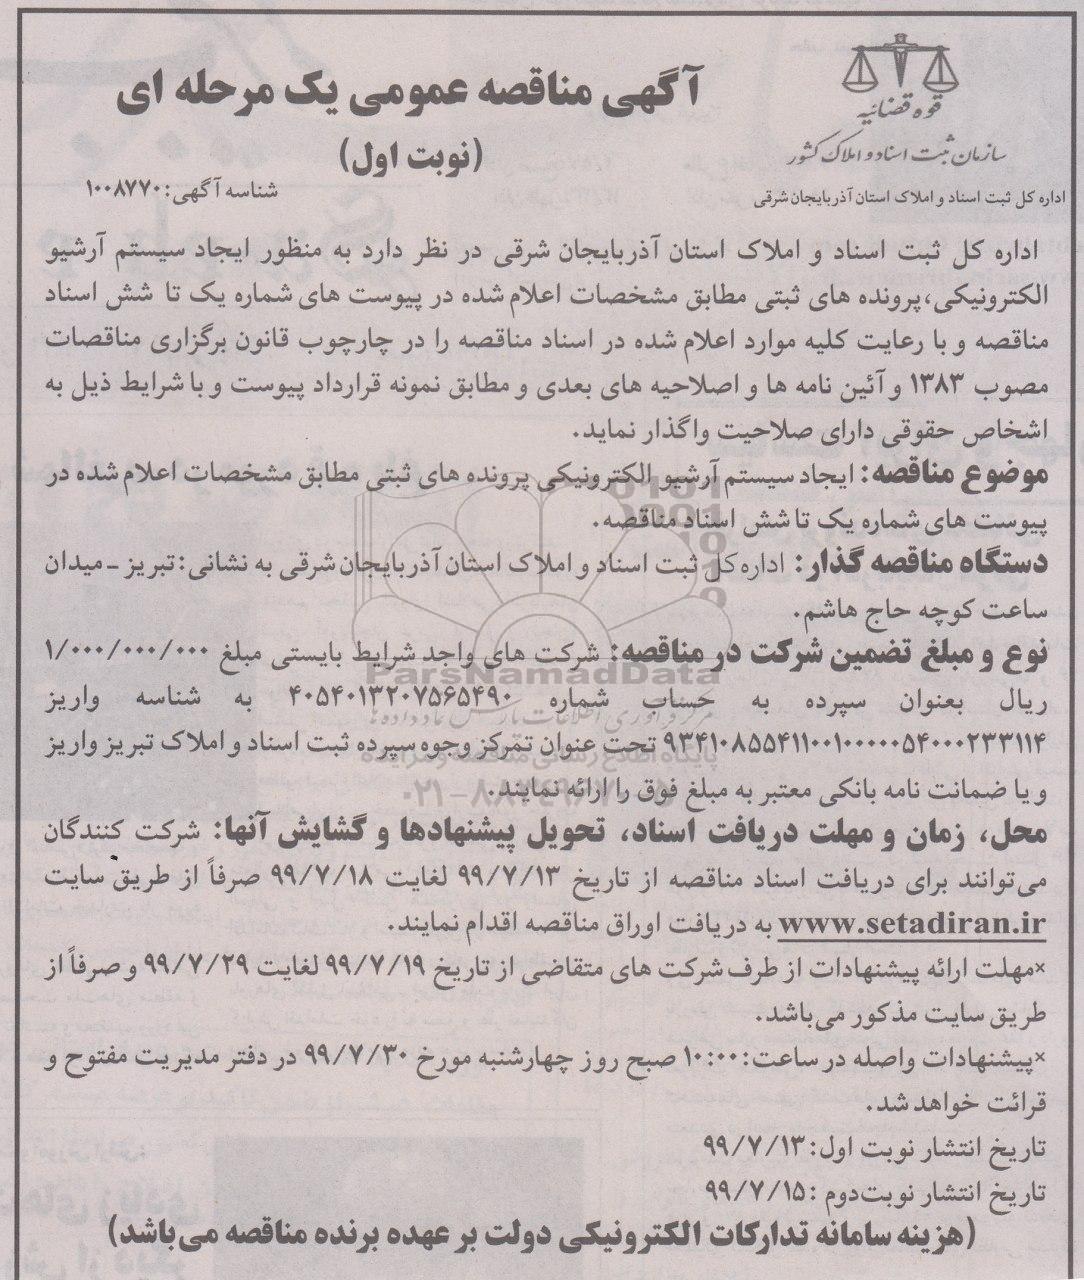 قوه قضائیه
سازمان ثبت اسناد و املاک کشور
اداره کل ثبت اسناد و املاک استان آذربایجان شرقی
آگهی مناقصه عمومی یک مرحله ای
(نوبت اول)
شناسه آگهی: ۱۰۰۸۷۷۰
اداره کل ثبت اسناد و املاک استان آذربایجان شرقی در نظر دارد به منظور ایجاد سیستم آرشیو
الکترونیکی،پرونده های ثبتی مطابق مشخصات اعلام شده در پیوست های شماره یک تا شش اسناد
مناقصه و با رعایت کلیه موارد اعلام شده در اسناد مناقصه را در چارچوب قانون برگزاری مناقصات
مصوب ۱۳۸۳ و آئین نامه ها و اصلاحیه های بعدی و مطابق نمونه قرارداد پیوست و با شرایط ذیل به
اشخاص حقوقی دارای صلاحیت واگذار نماید.
موضوع مناقصه: ایجاد سیستم آرشیو الکترونیکی پرونده های ثبتی مطابق مشخصات اعلام شده در
پیوست های شماره یک تا شش اسناد مناقصه.
دستگاه مناقصه گذار: اداره کل ثبت اسناد و املاک استان آذربایجان شرقی به نشانی: تبریز ـ میدان
ساعت کوچه حاج هاشم.
نوع و مبلغ تضمین شرکت در مناقصه: شرکت های واجد شرایط بایستی مبلغ ۱/۰۰۰/۰۰۰/۰۰۰
ریال بعنوان سپرده به حساب شماره ۴۰۵۴۰۱۳۲۰۷۵۶۵۴۹۰ به شناسه واریز
۹۳۴۱۰۸۵۵۴۱۱۰۰۱۰۰۰۰۰۵۴۰۰۰۲۳۳۱۱۴ تحت عنوان تمرکز وجوه سپرده ثبت اسناد و املاک تبریز واریز
و یا ضمانت نامه بانکی معتبر به مبلغ فوق را ارائه نمایند.
محل، زمان و مهلت دریافت اسناد، تحویل پیشنهادها و گشایش آنها: شرکت کنندگان
می‌توانند برای دریافت اسناد مناقصه از تاریخ ۹۹/۷/۱۳ لغایت ۹۹/۷/۱۸ صرفاً از طریق سایت
www.setadiran.ir به دریافت اوراق مناقصه اقدام نمایند.
×مهلت ارائه پیشنهادات از طرف شرکت های متقاضی از تاریخ ۹۹/۷/۱۹ لغایت ۹۹/۷/۲۹ و صرفاً از
طریق سایت مذکور می‌باشد.
×پیشنهادات واصله در ساعت: ۱۰:۰۰ صبح روز چهارشنبه مورخ ۹۹/۷/۳۰ در دفتر مدیریت مفتوح و
قرائت خواهد شد.
تاریخ انتشار نوبت اول: ۹۹/۷/۱۳
تاریخ انتشار نوبت‌دوم : ۹۹/۷/۱۵
(هزینه سامانه تدارکات الکترونیکی دولت بر عهده برنده مناقصه می‌باشد)
ParsNamadData